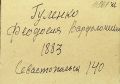 Гуленко
Феодосия Варфоломеевна
1883
Севастопольск 140